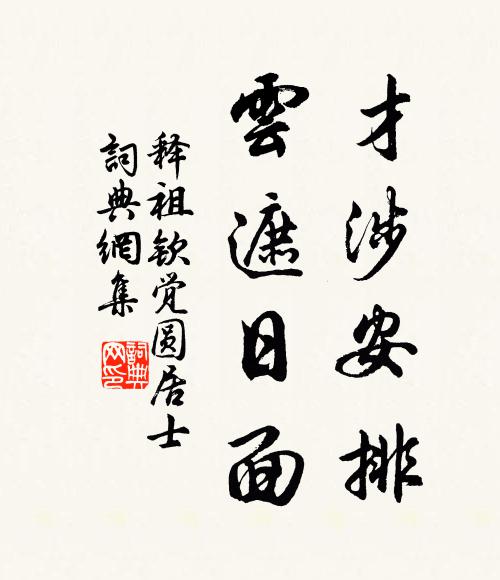 才涉安排
雲遮日面
释祖钦觉圆居士
詞典網集
詞典
网印